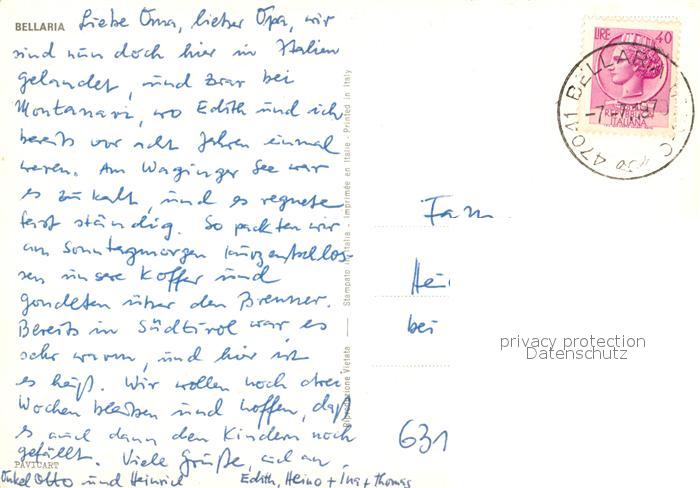 BELLARIA Liebe Oma, lieber Opa, wir
sind nun doch hier in Italien
gelandet, und zwar bei
Montanari, wo Edith und ich
bereits vor acht Jahren einmal
waren. Am Waginger See war
es zu kalt, und es regnete
fast ständig. So packten wir
am Sonntagmorgen kurzentschlos-
sen unsere Koffer und
gondelten über den Brenner.
Bereits in Südtirol war es
sehr warm, und hier ist
es heiß. Wir wollen noch drei
Wochen bleiben und hoffen, daß
es auch dann den Kindern noch
gefällt. Viele Grüße, auch an
Onkel Otto und Heinrich
Edith, Heino + Ina + Thomas
PAVICART
Riproduzione Vietata — Stampato in Italia - Imprimée en Italie - Printed in Italy
LIRE 40
REPUBBLICA
ITALIANA
47011 BELLARIA
Fam
Hei
bei
631
privacy protection
Datenschutz